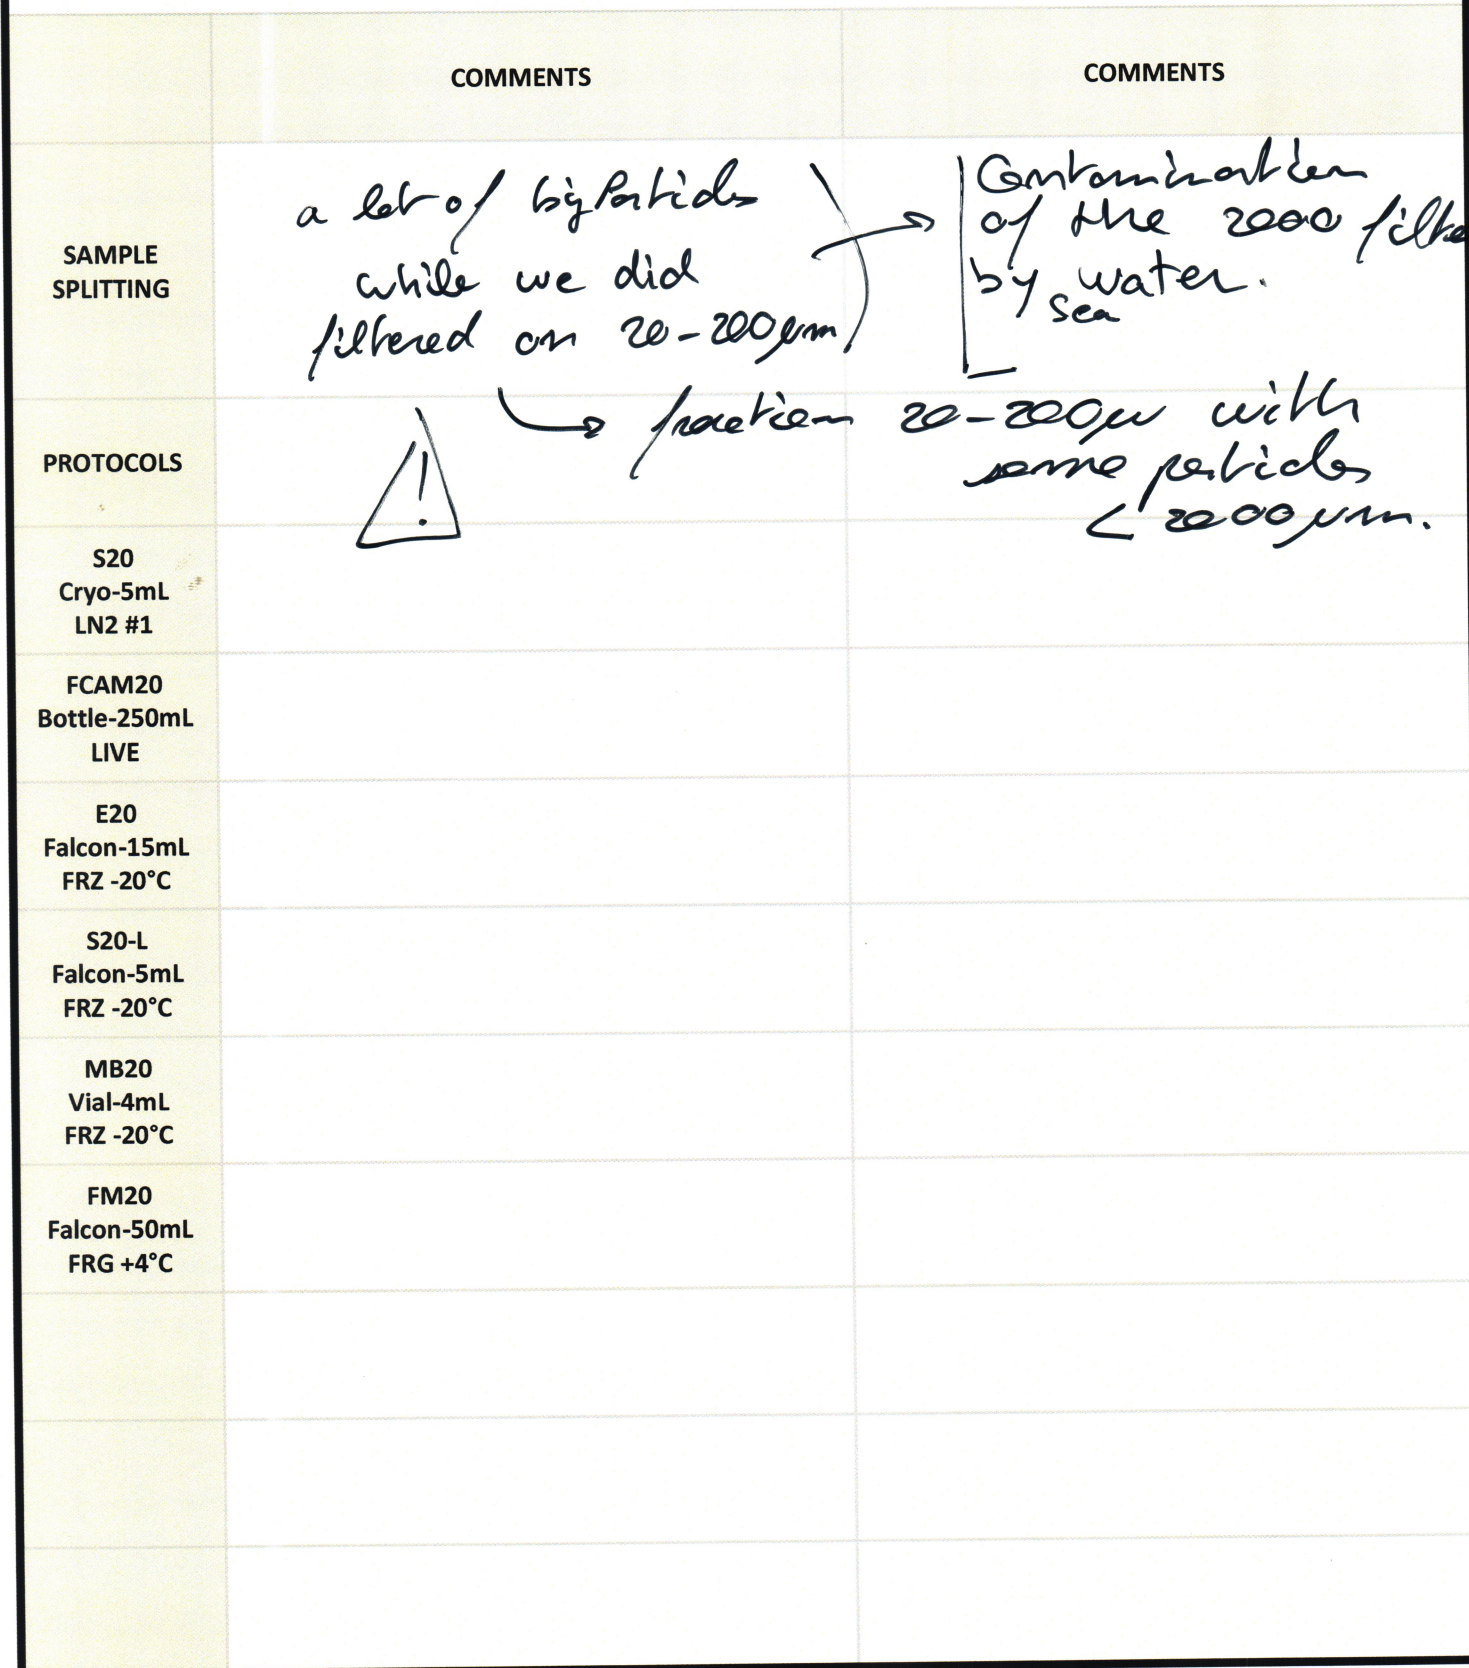 COMMENTS COMMENTS
a lot of big Particles
while we did
filtered on 20-200µm
Contamination
of the 2000 filte
by sea water.
SAMPLE
SPLITTING
→ fraction 20-200µ with
some particles
< 2000µm.
!
PROTOCOLS
S20
Cryo-5mL
LN2 #1
FCAM20
Bottle-250mL
LIVE
E20
Falcon-15mL
FRZ -20°C
S20-L
Falcon-5mL
FRZ -20°C
MB20
Vial-4mL
FRZ -20°C
FM20
Falcon-50mL
FRG +4°C